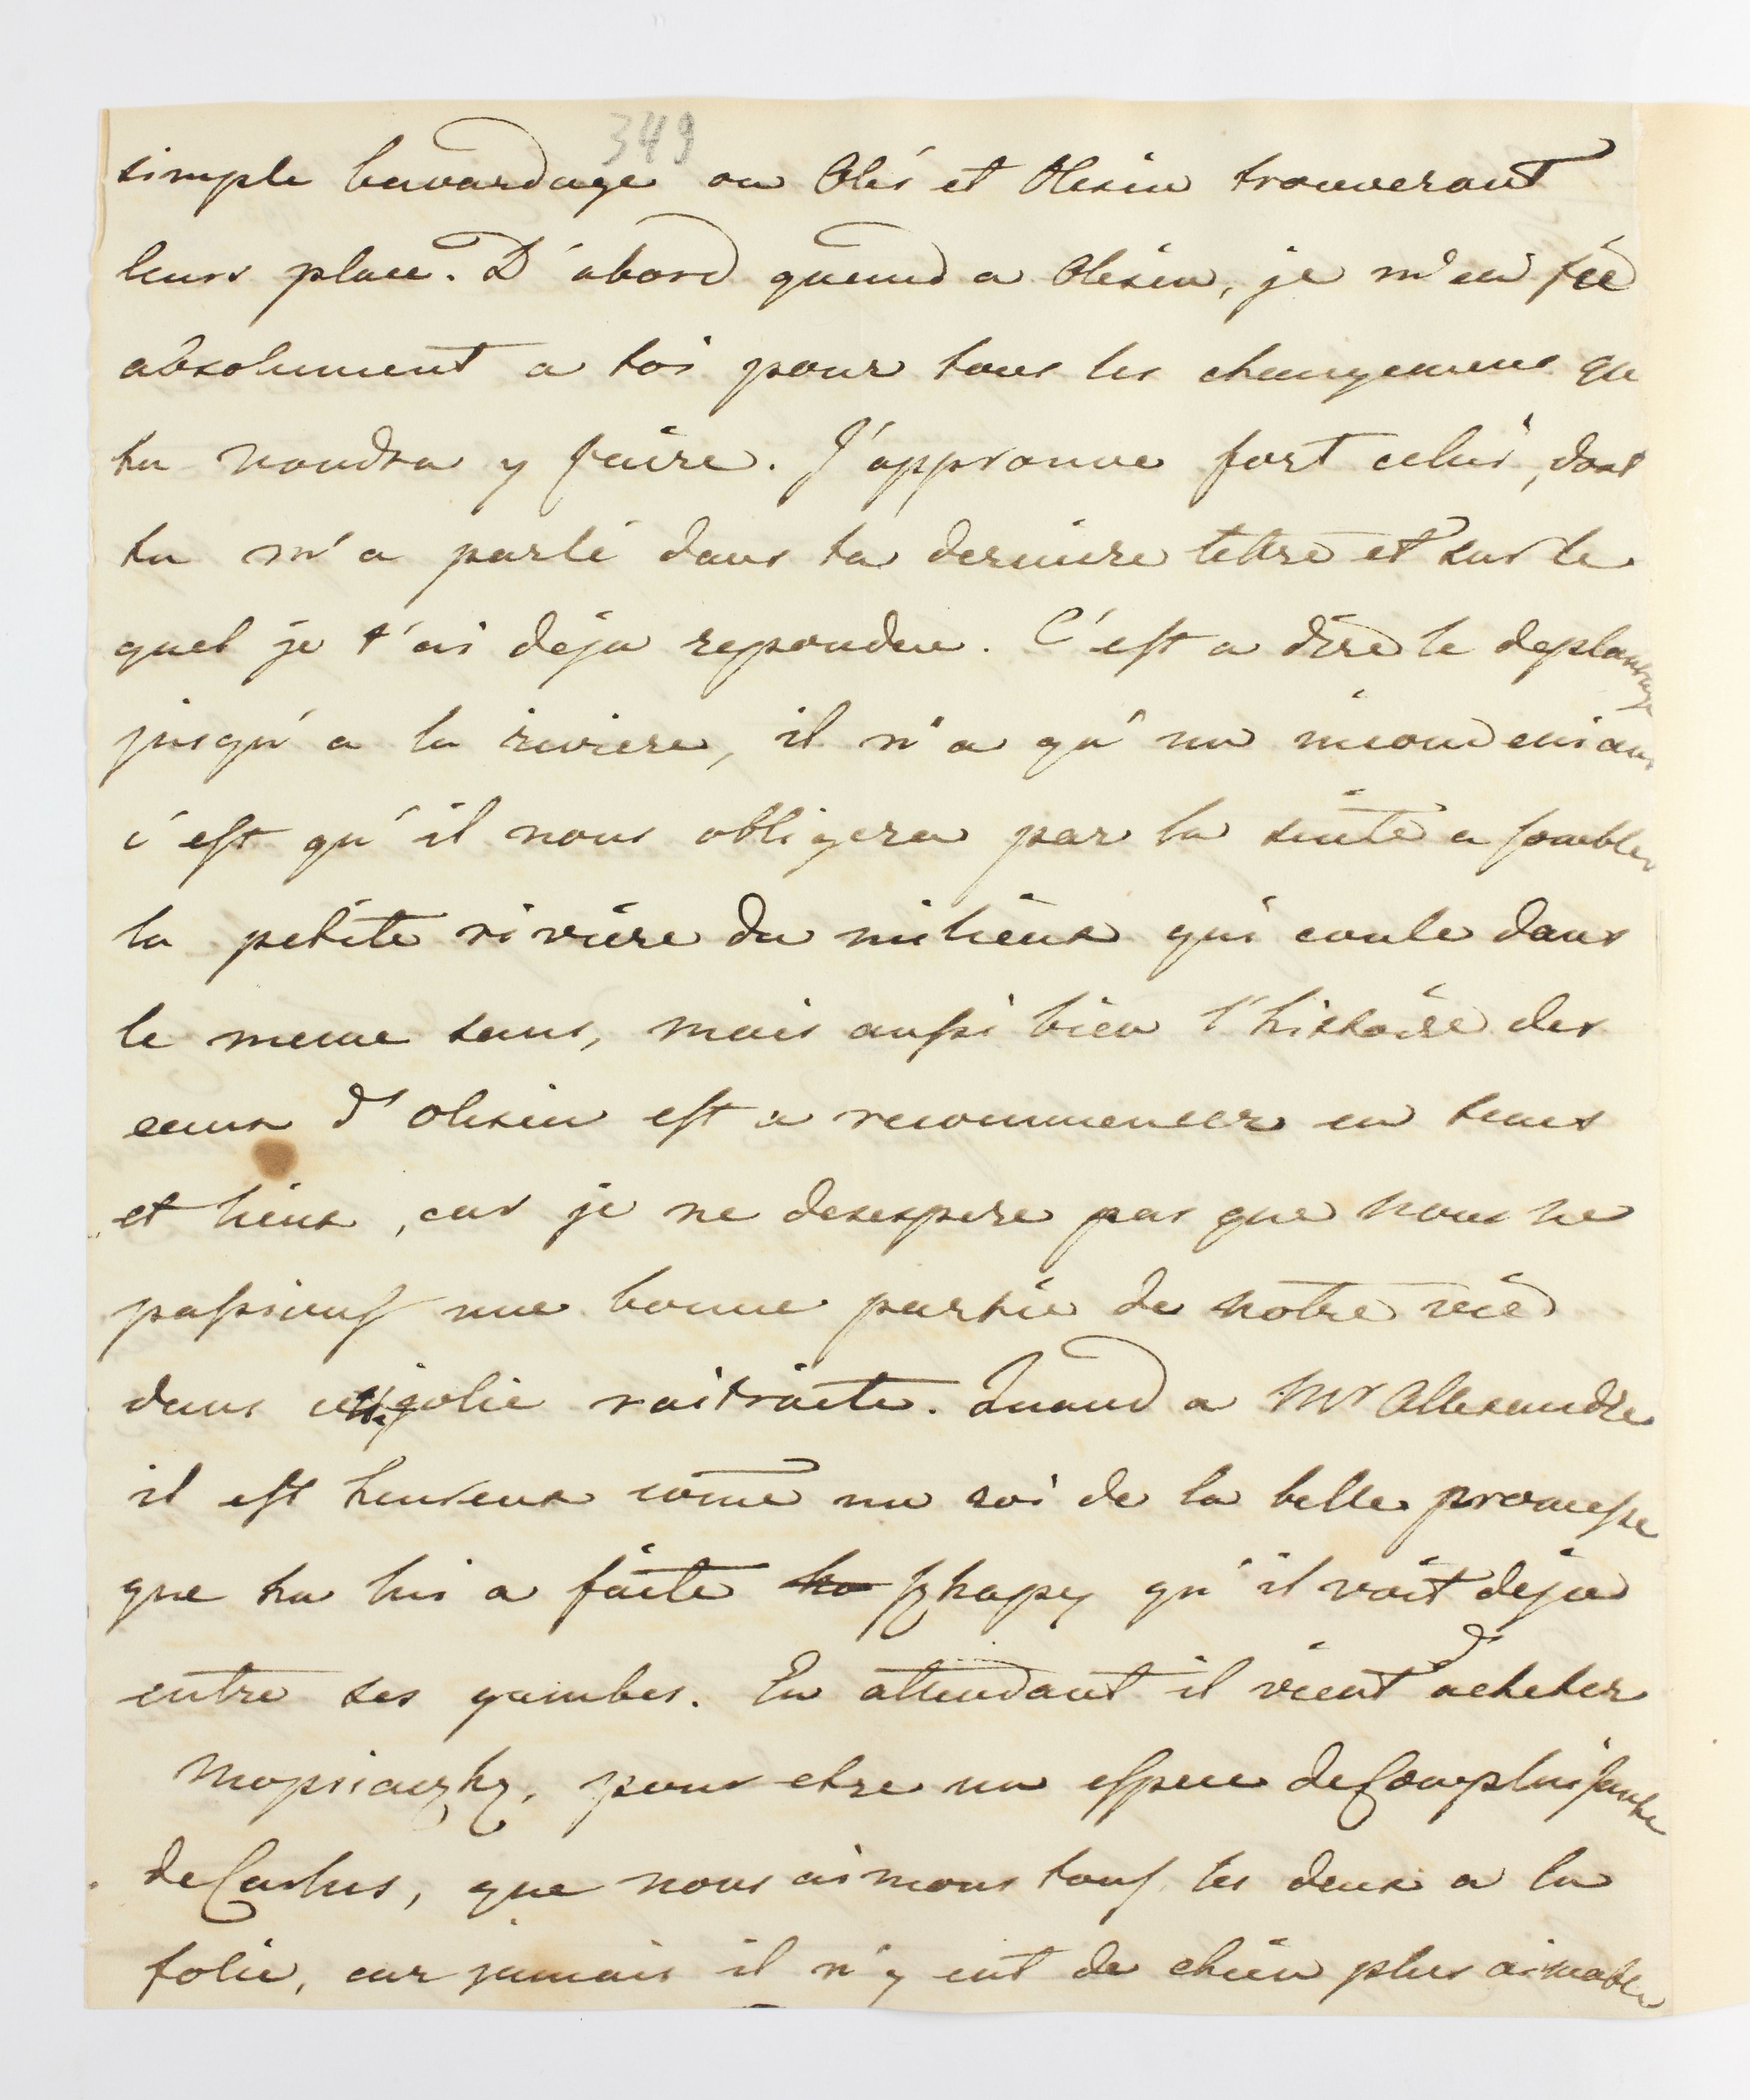 349
simple bavardage ou Olés et Olesin trouveront
leurs place. D'abord quand a Olesin, je m'en fie
absolument a toi pour tous les changemens que
tu voudra y faire. J'approuve fort celui, dont
tu m'a parlé dans ta derniere lettre et sur le
quel je t'ai deja repondu. C'est a dire le deplacement
jusqu'a la riviere, il n'a qu'un
c'est qu'il nous obligera par la suite a combler
la petite riviere du milieux qui coule dans
le meme sens, mais aussi bien l'histoire des
eaux d'Olesin est a recommencer en tems
et lieux, car je ne desespere pas que nous ne
passions une bonne partie de notre vie
dans cette jolie raitraite. Quand a Mr Allexandre
il est heureux come un roi de la belle promesse
que tu lui a faite qu'il voit deja
entre ses gambes. En attendant il vient d'acheter
pour etre un espece de Complaisante
de Carlus, que nous aimons tous les deux a la
folie, car jamais il n'y eut de chien plus aimable